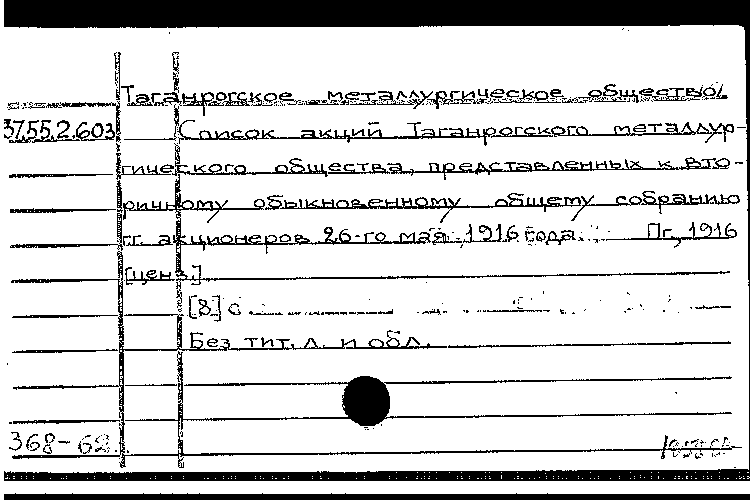 Таганрогское металлургическое общество.
37.55.2.603 Список акций Таганрогского металлур-
гического общества, представленных к вто-
ричному обыкновенному общему собранию
гг. акционеров 26-го мая 1916 года. Пг., 1916
[ценз.]
[8] с
Без тит. л. и обл.
368-62